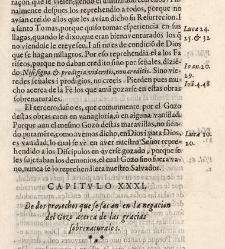 nalmente despues los reprehendió a todos, porque no
avian creido a los que les avian dicho su Resurreccion. I
a santo Tomas, porque quiso tomar esperiencia en sus
llagas, quando le dixo, que eran bienaventurados los q̃
no viendole le creyessen. I assi no es de condicion de Dios
que se hagan milagros. Por esso reprehendia el a los Fa
riseos, porque no davan credito sino por señales, dizien
do, Nisi signa & prodigia videritis, non creditis. Sino vie
redes señales i prodigios, no creeis. Pierden pues mu
cho acerca de la Fè los que amã gozarse en estas obras
sobrenaturales.
El tercero daño es, que comunmente por el Gozo
destas obras caen en vanagloria, o en alguna vanidad.
Porque aun el mesmo Gozo destas maravillas, no sien
do puramente, como avemos dicho, en Dios i para Dios,
es vanidad. Lo qual se vè en aver nuestro Señor repre
hendido a los Dicipulos por averse gozado, porque se
les sujetaban los demonios, el qual Gozo sino fuera va
no, nunca se lo reprehendiera nuestro Salvador.
CAPITULO XXXI.
De dos provechos que se sacan en la negacion
del Gozo acerca de las gracias
sobrenaturales.
Luc. 24.
25. & 32
Ioan. 20.
29.
Ioã. 4. 48